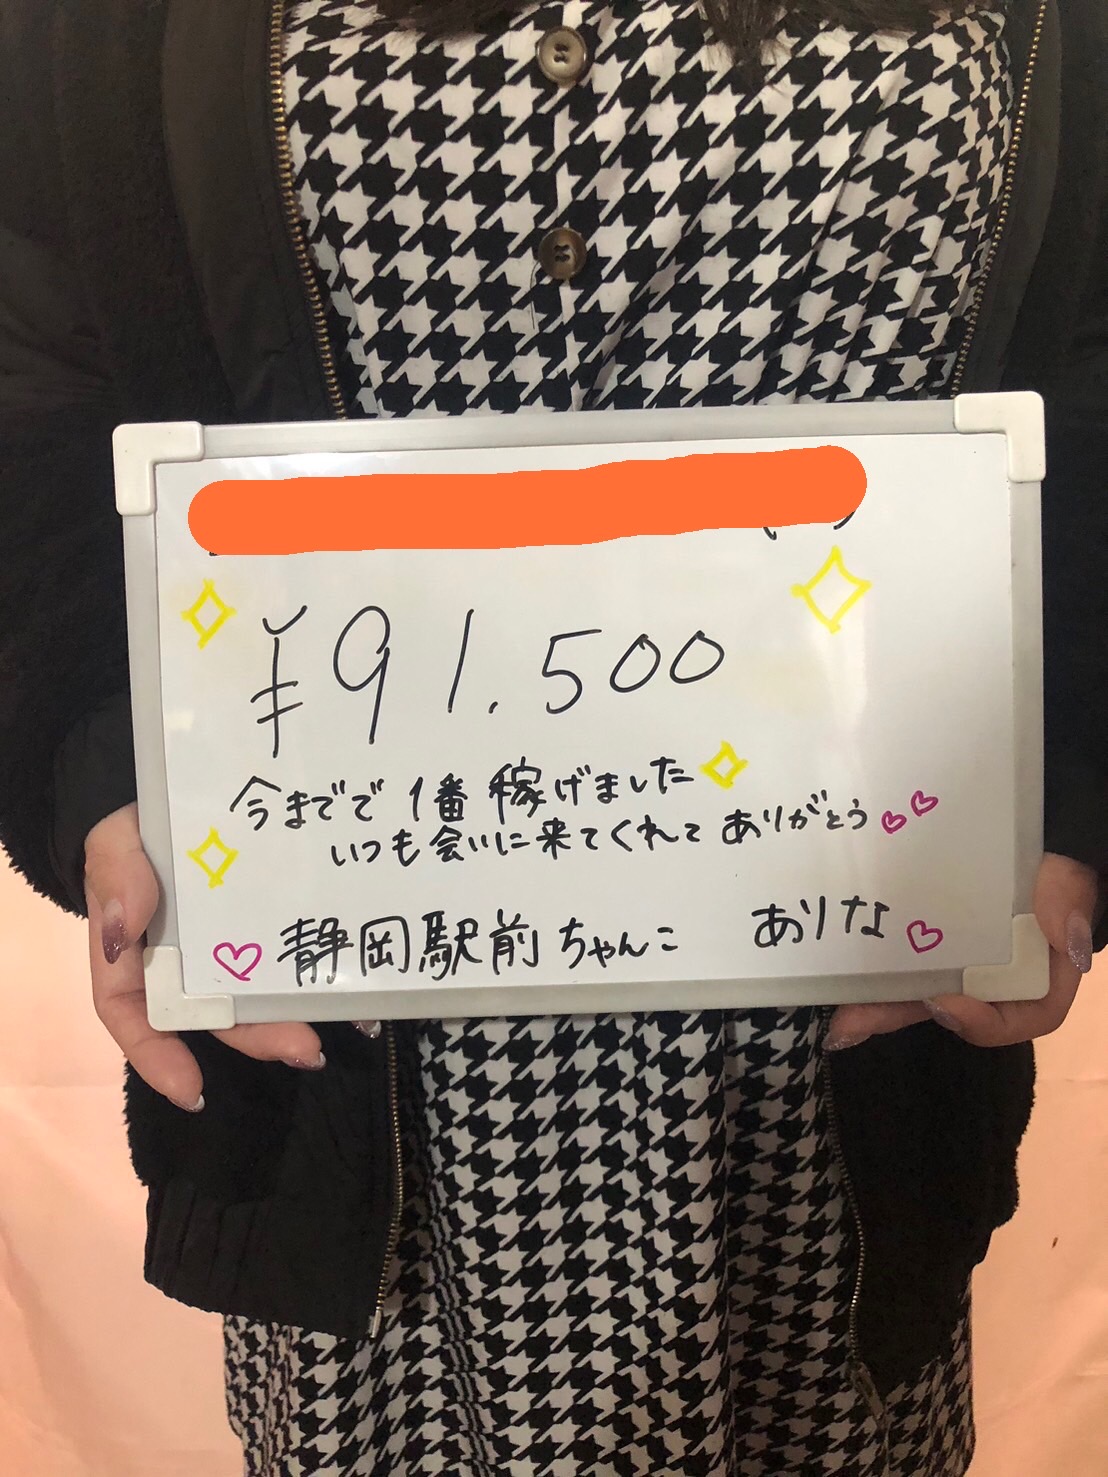 ¥91.500
今までで1番稼げました
いつも会いに来てくれてありがとう
静岡駅前ちゃんこ ありな